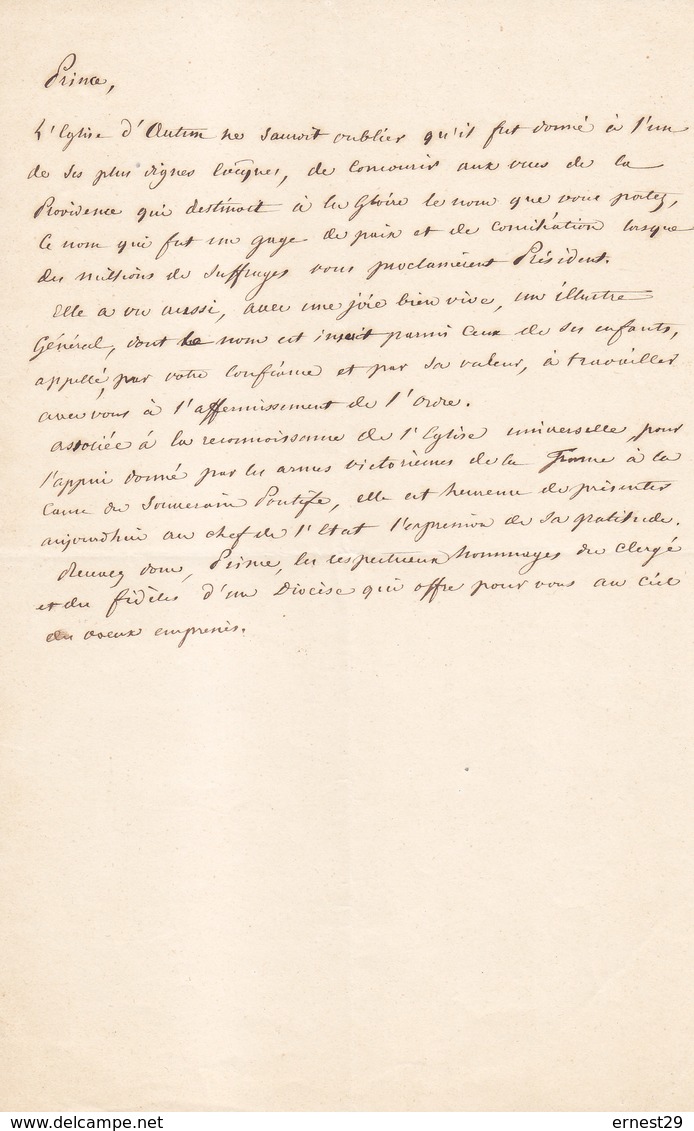 Prince,
L'Eglise d'Autun ne sauroit oublier qu'il fut donné à l'un
de ses plus dignes Evêques, de concourir aux vues de la
Providence qui destinoit à la Gloire le nom que vous portez,
Ce nom qui fut un gage de paix et de conciliation lorsque
des millions de suffrages vous proclamèrent Président.
Elle a vu aussi, avec une joie bien vive, un illustre
Général, dont le nom est inscrit parmi ceux de ses enfants,
appellé, par votre confiance et par sa valeur, à travailler
avec vous à l'affermissement de l'ordre.
associée à la reconnoissance de l'Eglise universelle, pour
l'appui donné par les armes victorieuses de la France à la
Cause du Souverain Pontife, elle est heureuse de présenter
aujourdhui au chef de l'Etat l'expression de sa gratitude.
Recevez donc, Prince, les respectueux hommages du Clergé
et des fidèles d'un Diocèse qui offre pour vous au ciel
des voeux empressés.
www.delcampe.net
ernest29